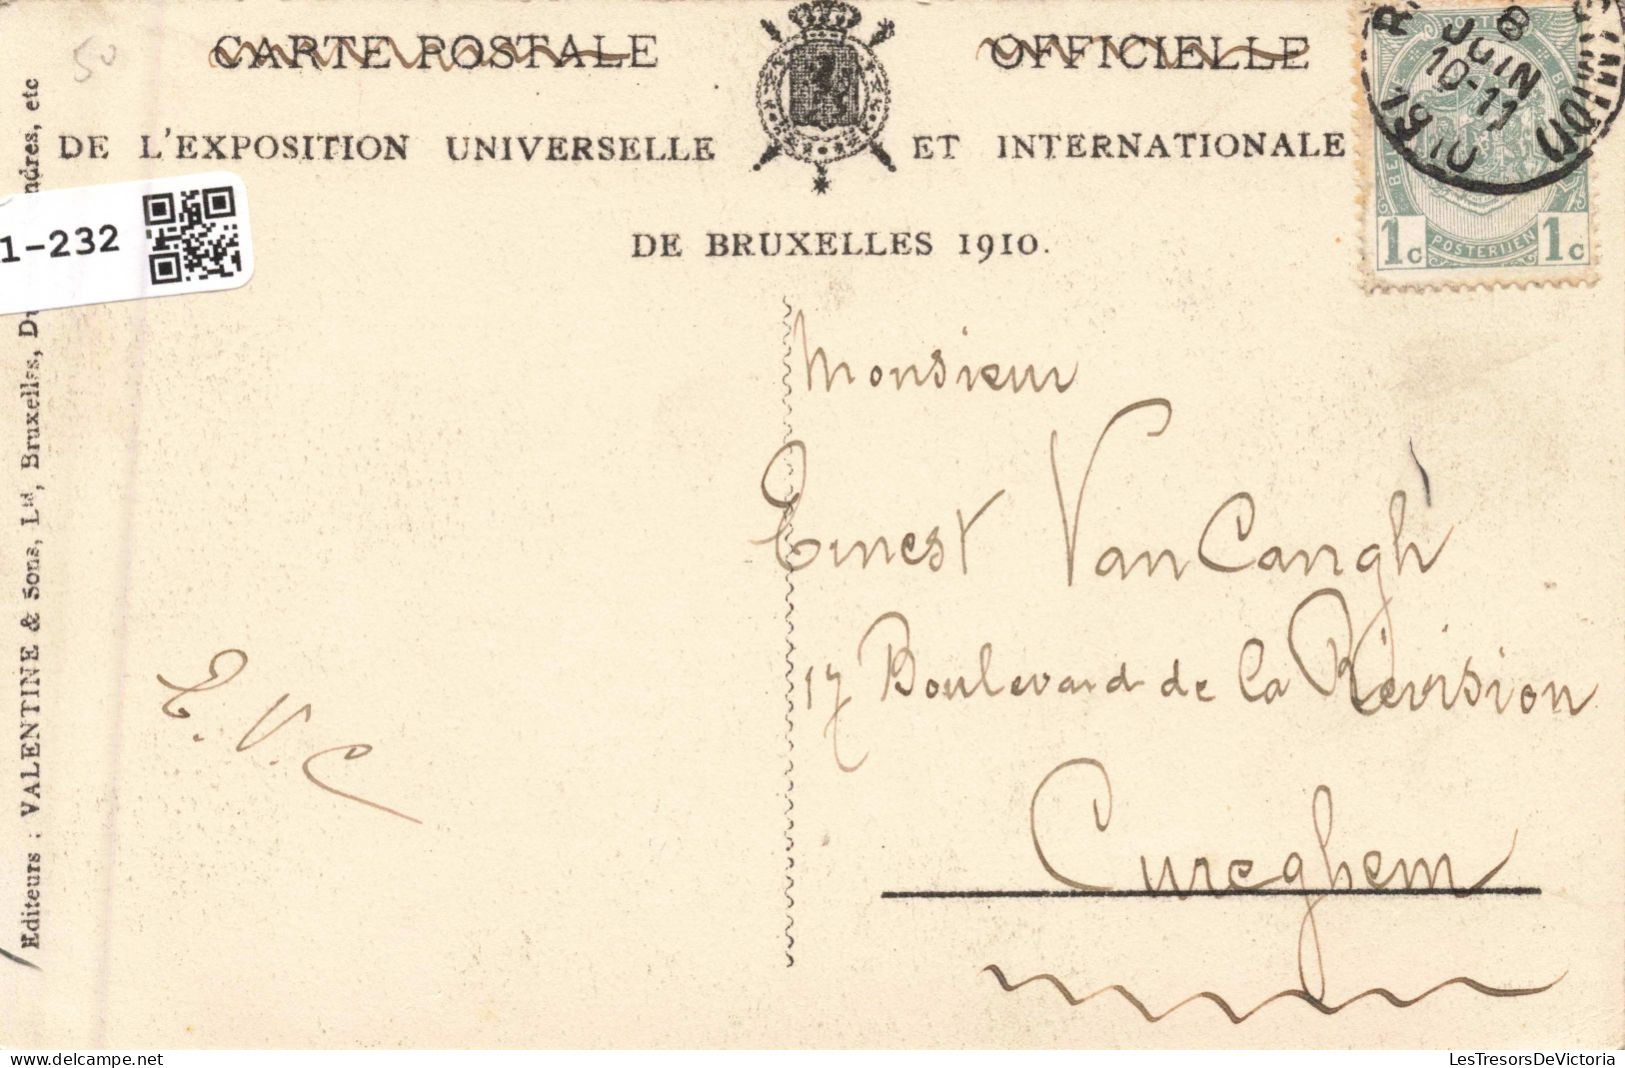 50
CARTE POSTALE OFFICIELLE
DE L'EXPOSITION UNIVERSELLE ET INTERNATIONALE
DE BRUXELLES 1910.
8
JUIN
10-11
1910
BELGIQUE
POSTERIJEN
1c 1c
1-232
Editeurs : VALENTINE & Sons, Ltd, Bruxelles, ndres, etc
Monsieur
Ernest Van Cangh
17 Boulevard de la Révision
Cureghem
E. V. C
LesTresorsDeVictoria
www.delcampe.net